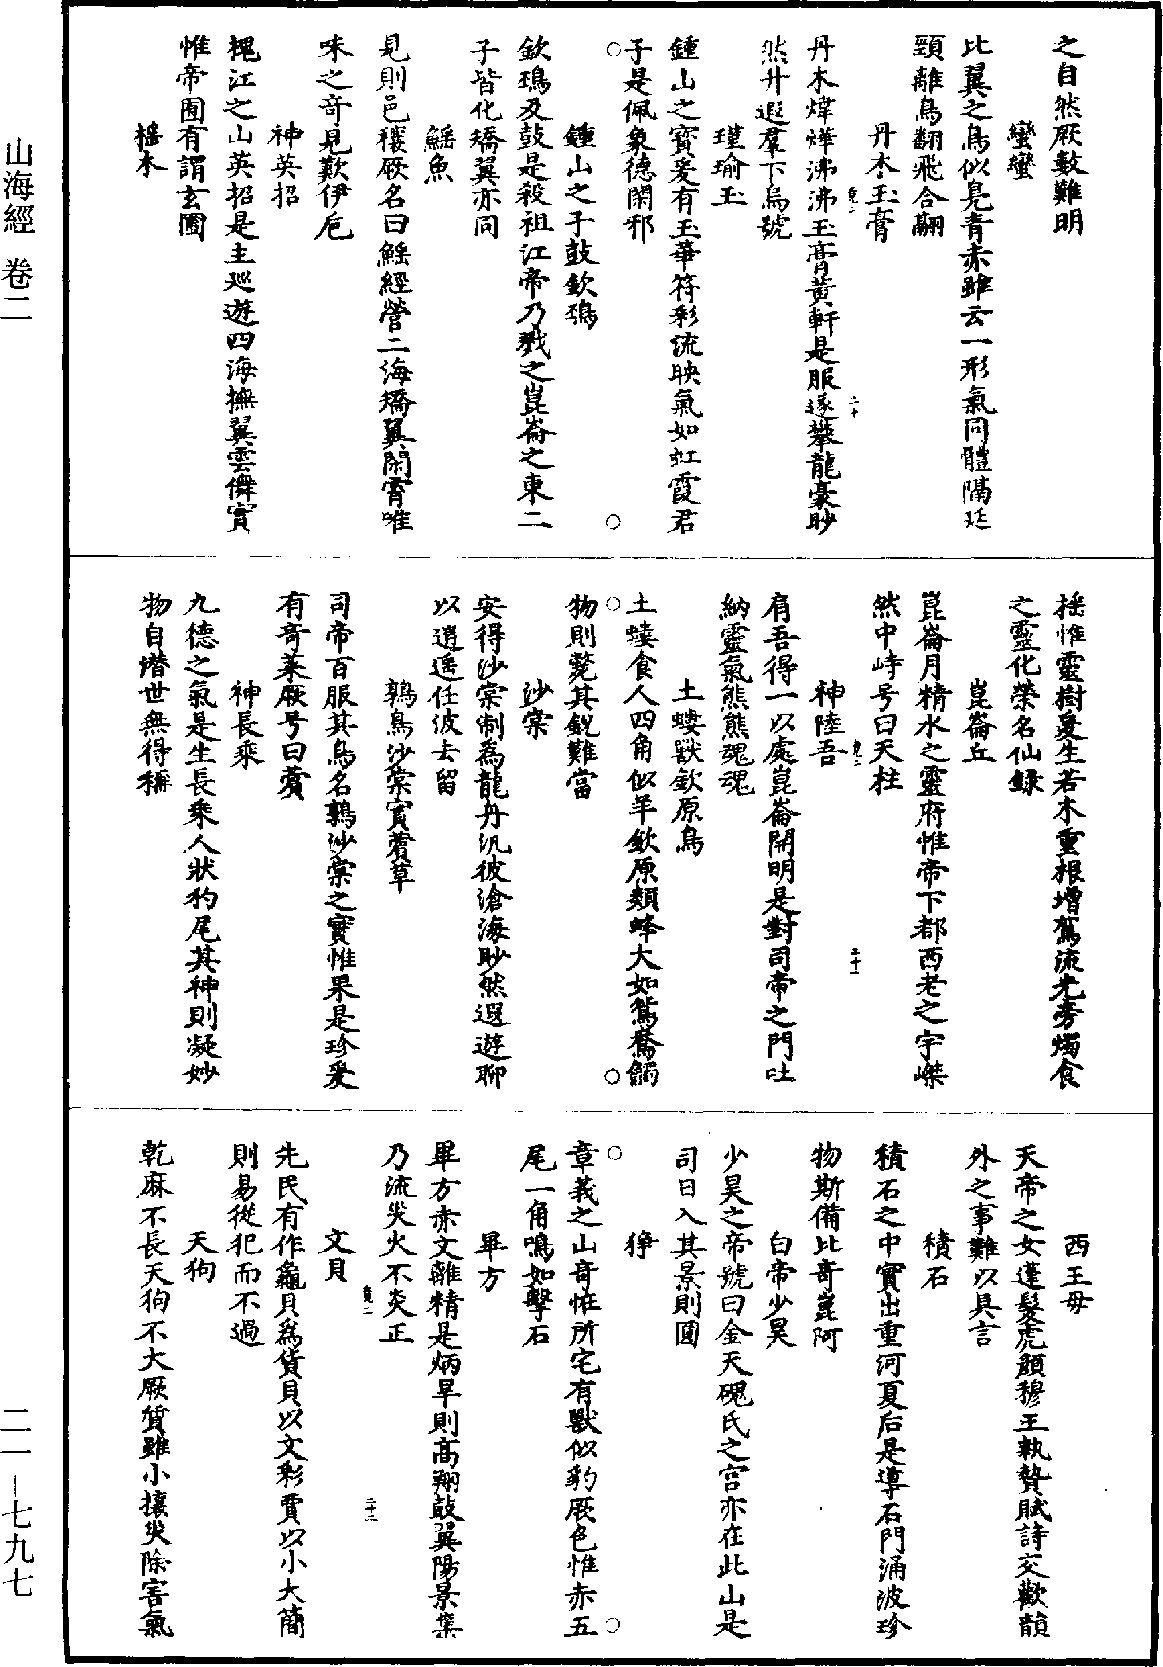 之自然厥數難明
蠻蠻
比翼之鳥似鳧青赤雖云一形氣同體隔延
頸離鳥翻飛合翮
丹木玉膏
丹木煒燁沸沸玉膏黃軒是服遂攀龍豪眇
然升遐羣下烏號
瑾瑜玉
鍾山之寶爰有玉華符彩流映氣如虹霞君
子是佩象德閑邪
鍾山之子鼓欽䲹
欽䲹及鼓是殺祖江帝乃戮之崑崙之東二
子皆化矯翼亦同
鰩魚
見則邑穰厥名曰鰩經營二海矯翼閑霄唯
味之奇見歎伊庖
神英招
槐江之山英招是主巡遊四海撫翼雲儛實
惟帝囿有謂玄圃
榣木
榣惟靈樹爰生若木重根增駕流光旁燭食
之靈化榮名仙錄
崑崙丘
崑崙月精水之靈府惟帝下都西老之宇嶸
然中峙号曰天柱
神陸吾
肩吾得一以處崑崙開明是對司帝之門吐
納靈氣熊熊魂魂
土螻獸欽原鳥
土螻食人四角似羊欽原類蜂大如鴛鴦觸
物則斃其銳難當
沙棠
安得沙棠制為龍舟汎彼滄海眇然遐遊聊
以逍遙任波去留
鶉鳥沙棠實薲草
司帝百服其鳥名鶉沙棠之實惟果是珍爰
有奇菜厥号曰薲
神長乘
九德之氣是生長乘人狀豹尾其神則凝妙
物自潛世無得稱
西王母
天帝之女蓬髮虎顏穆王執贄賦詩交歡韻
外之事難以具言
積石
積石之中實出重河夏后是導石門涌波珍
物斯備比奇崑阿
白帝少昊
少昊之帝號曰金天磈氏之宮亦在此山是
司日入其景則圓
猙
章莪之山奇怪所宅有獸似豹厥色惟赤五
尾一角鳴如擊石
畢方
畢方赤文離精是炳旱則高翔鼓翼陽景集
乃流災火不炎正
文貝
先民有作龜貝為貨貝以文彩賈以小大簡
則易從犯而不過
天狗
乾麻不長天狗不大厥質雖小攘災除害氣
山海經 卷二
二一—七九七